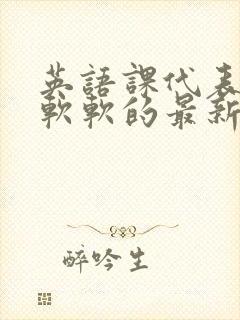 英語課代表
軟軟的最新
醉吟生